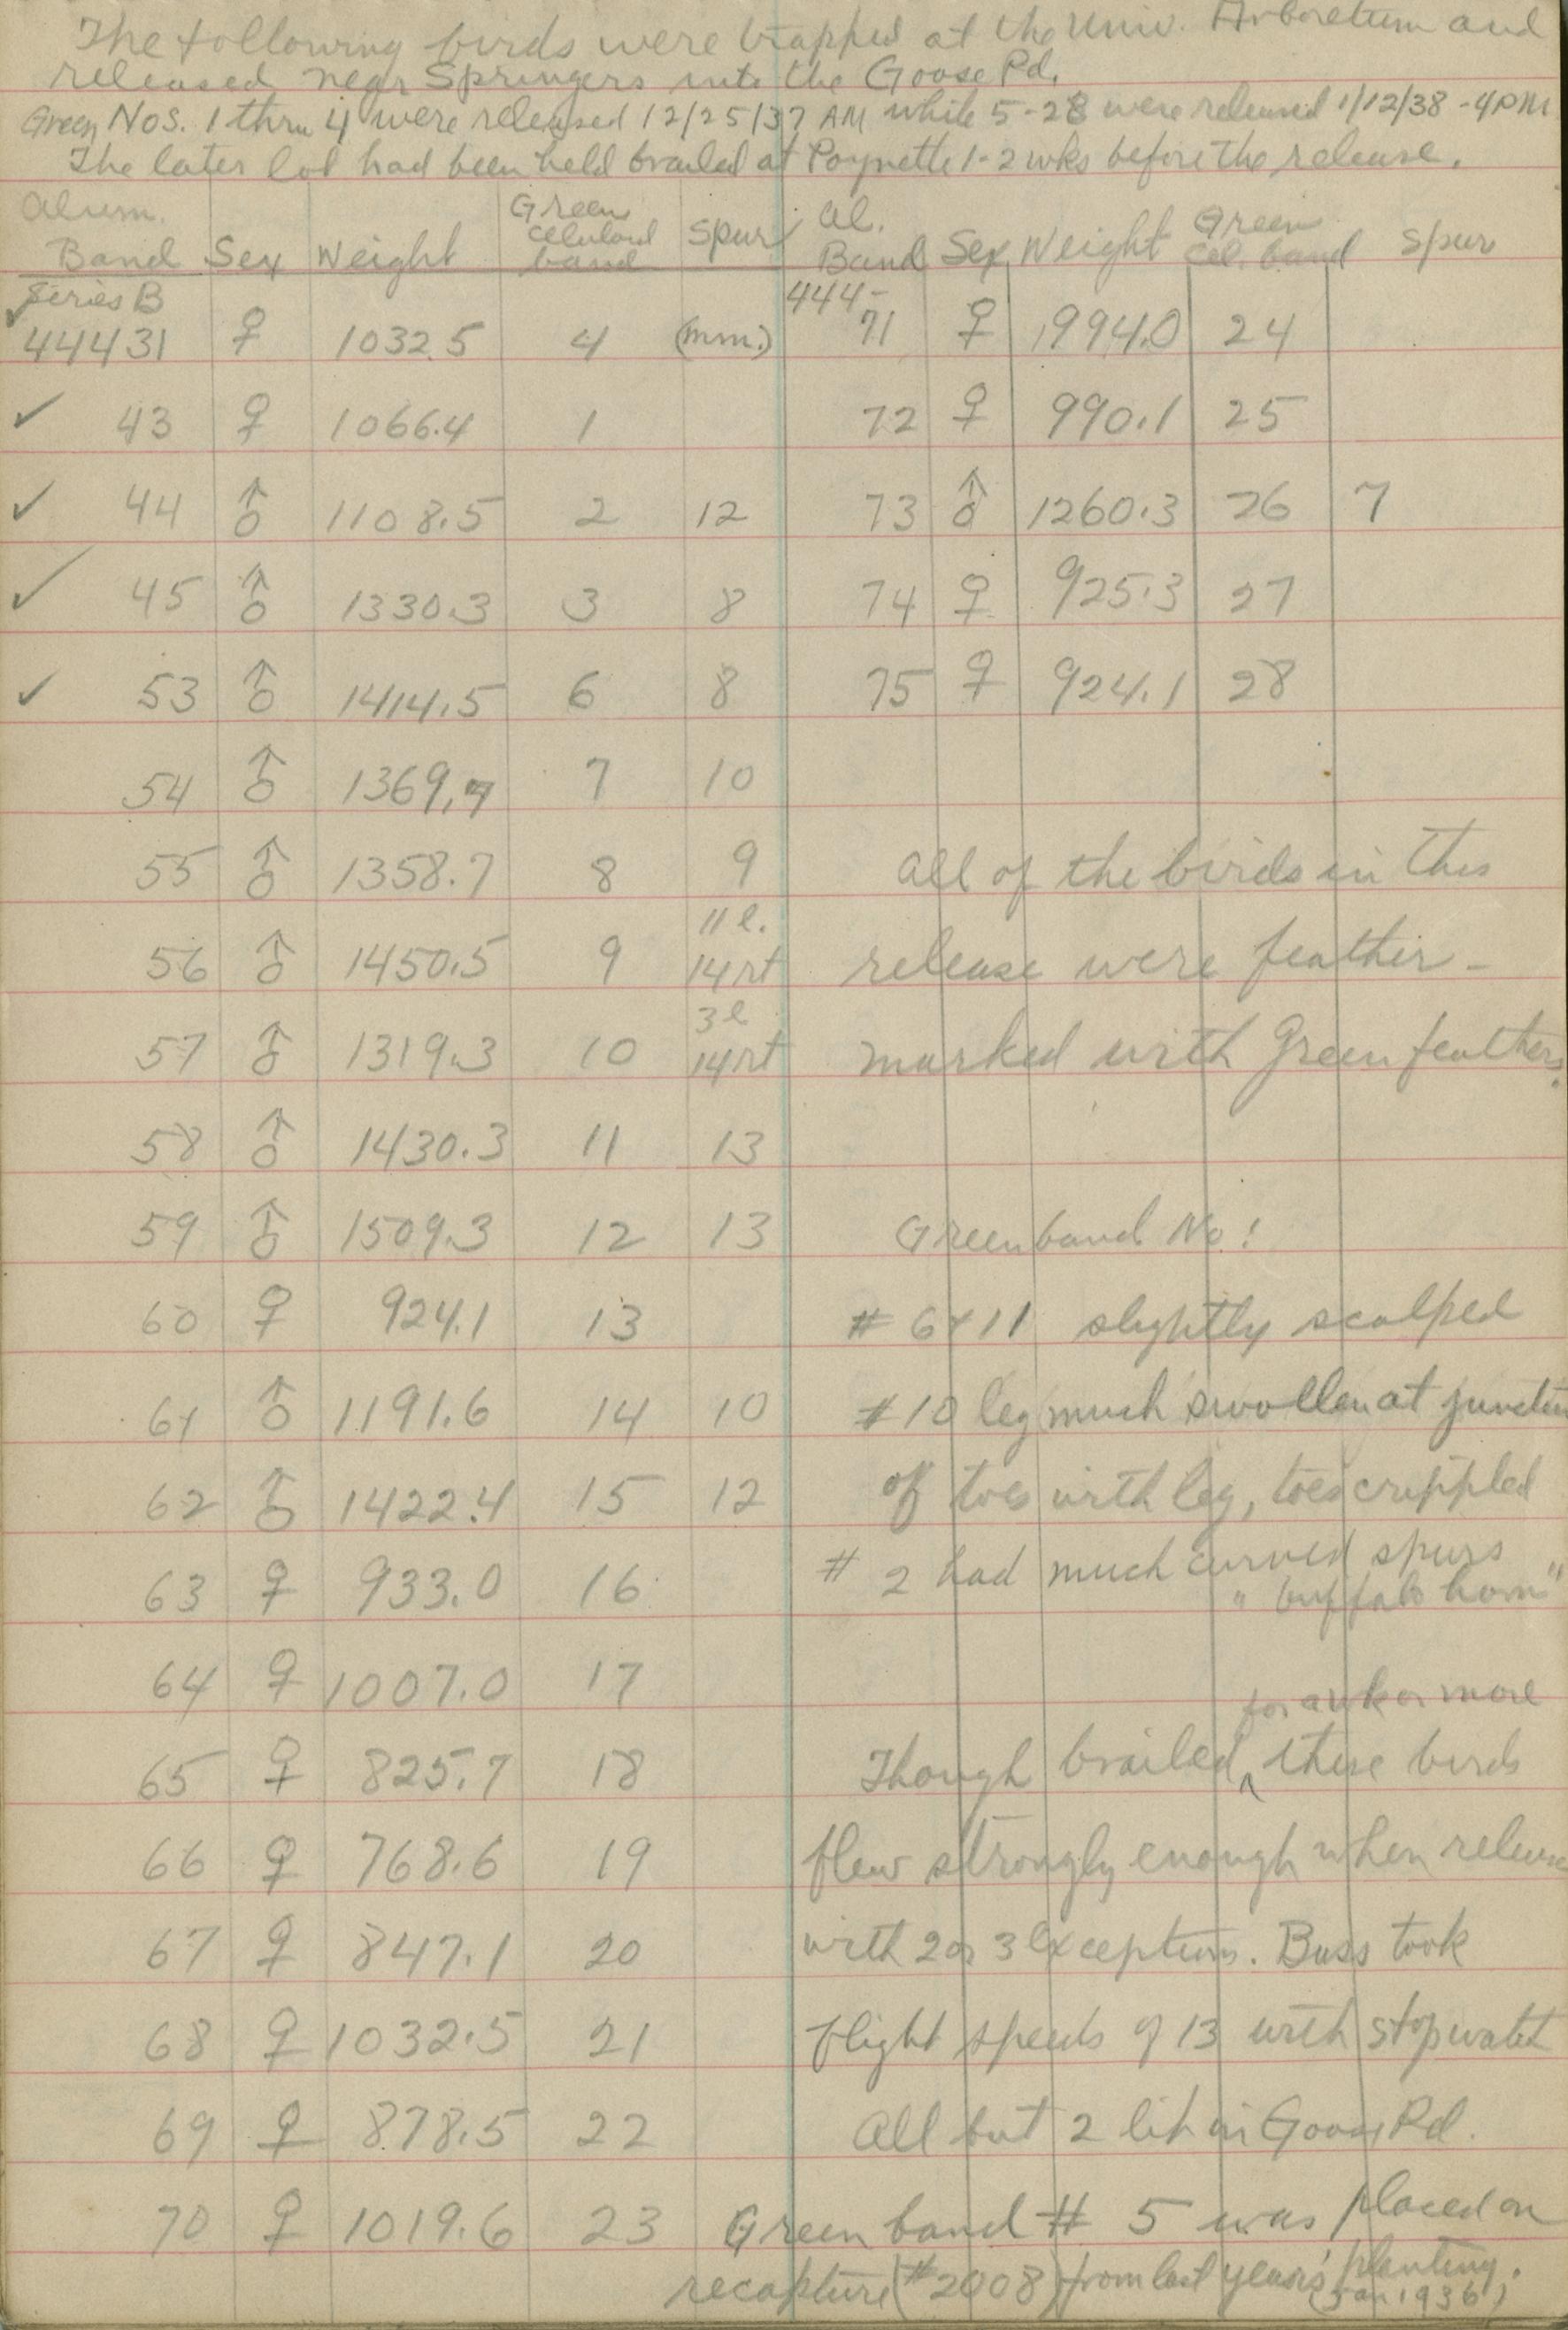 The following birds were trapped at the Univ. Arboretum and
released near Springers into the Goose Pd.
Green Nos. 1 thru 4 were released 12/25/37 AM while 5-28 were released 1/12/38 - 4PM
The later lot had been held brailed at Poynette 1-2 wks before the release.
Alum. Band Sex Weight Green Celuloid band Spur Al. Band Sex Weight Green Cel. band Spur
Series B 444-
✓ 44431 ♀ 1032.5 4 (mm.) 71 ♀ 994.0 24
✓ 43 ♀ 1066.4 1 72 ♀ 990.1 25
✓ 44 ♂ 1108.5 2 12 73 ♂ 1260.3 26 7
✓ 45 ♂ 1330.3 3 8 74 ♀ 925.3 27
✓ 53 ♂ 1414.5 6 8 75 ♀ 924.1 28
54 ♂ 1369.7 7 10
55 ♂ 1358.7 8 9 All of the birds in this
11 l.
56 ♂ 1450.5 9 14 rt release were feather-
3 l
57 ♂ 1319.3 10 14 rt marked with Green feathers.
58 ♂ 1430.3 11 13
59 ♂ 1509.3 12 13 Green band No:
60 ♀ 924.1 13 # 6 & 11 slightly scalped
61 ♂ 1191.6 14 10 # 10 leg much swollen at junction
62 ♂ 1422.4 15 12 of toes with leg, toes crippled
63 ♀ 933.0 16 # 2 had much curved spurs
"buffalo horn"
64 ♀ 1007.0 17 for a wk or more
65 ♀ 825.7 18 Though brailed ^ these birds
66 ♀ 768.6 19 flew strongly enough when release
67 ♀ 847.1 20 with 2 or 3 exceptions. Buss took
68 ♀ 1032.5 21 flight speeds of 13 with stopwatch
69 ♀ 878.5 22 All but 2 lit in Goose Pd.
70 ♀ 1019.6 23 Green band # 5 was placed on
recapture (#2008) from last years' planting.
(Jan 1936)